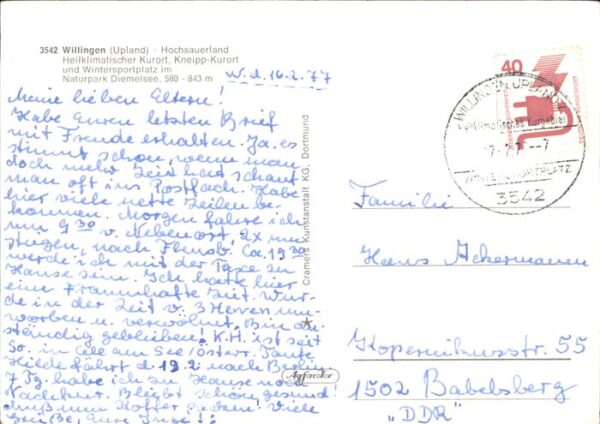 3542 Willingen (Upland) - Hochsauerland
Heilklimatischer Kurort, Kneipp-Kurort
und Wintersportplatz im
Naturpark Diemelsee, 580 - 843 m
W. d. 16.2.77
Meine lieben Eltern!
Habe Euren letzten Brief
mit Freude erhalten. Ja, es
stimmt schon, wenn man
doch mehr Zeit hat schaut
man oft ins Postfach. Habe
hier viele nette Zeilen be-
kommen. Morgen fahre ich
um 9 30 v. Nebenort, 2x um
steigen, nach Flensb. Ca. 19 30
werde ich mit der Taxe zu
Hause sein. Ich hatte hier
eine traumhafte Zeit. Wur-
de in der Zeit v. 3 Herren um-
worben u. verwöhnt. Bin an-
ständig geblieben! K.H. ist seit
So. in Zell am See/Österr. Tante
Hilde fährt d. 19.2. nach
7 Tg. habe ich zu Hause noch
Nachkur. Bleibt schön gesund!
Muß nun Koffer packen. Viele
Grüße, Eure Inge!!
Cramers Kunstanstalt KG, Dortmund
Agfacolor
40
WILLINGEN, UPLAND
Heilklimatisches
-7
3542
Familie
Hans Ackermann
Kopernikusstr. 55
1502 Babelsberg
"DDR"